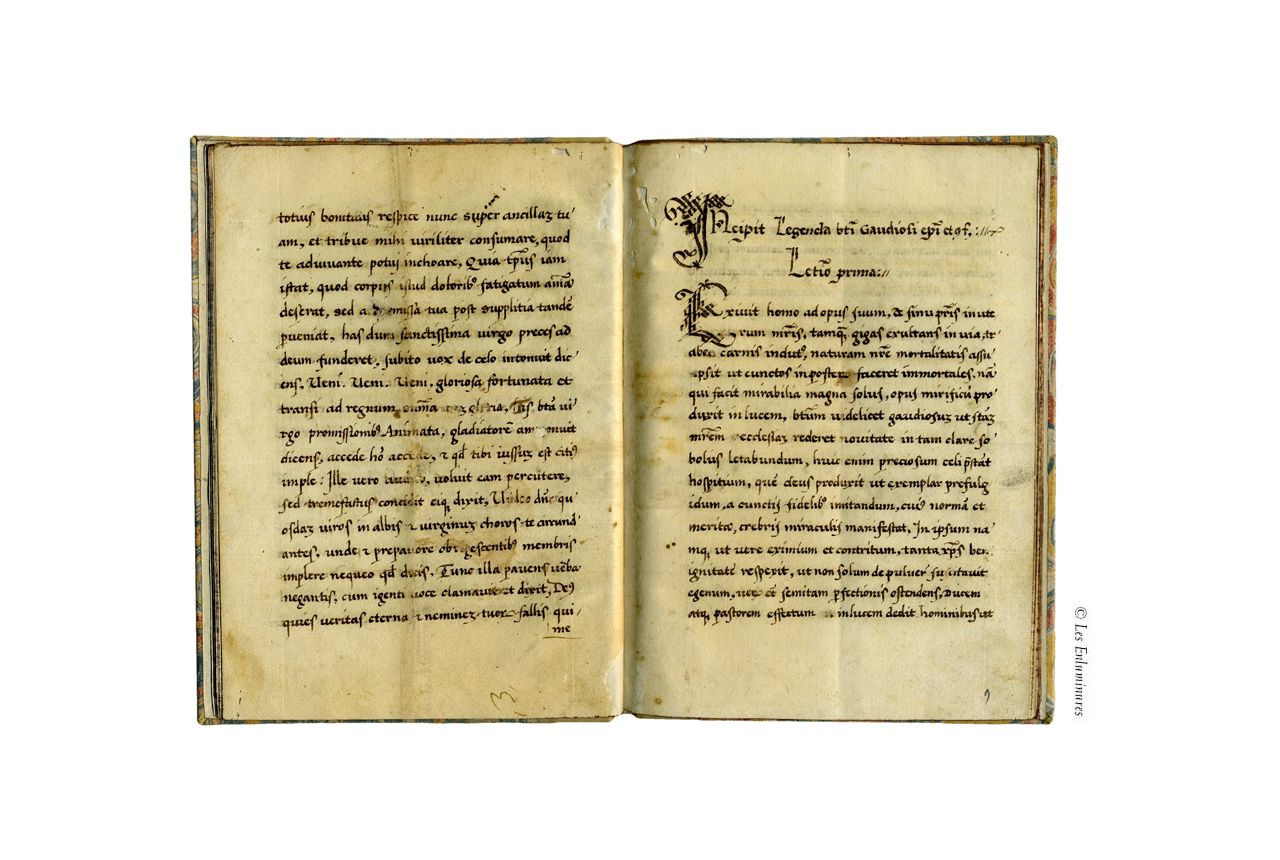 totius bonitatis respice nunc super ancillaz tu
am, et tribue mihi viriliter consumare, quod
te adiuvante potui inchoare, Quia tp̄us iam
istat, quod corpus istud dolorib9 fatigatum am̄a
deserat, sed a missa tua post supplitia tandē
p̄veniat, has dum sanctissima virgo preces ad
deum funderet, subito vox de celo intonuit dic
ens, Veni. Veni. Veni, gloriosa fortunata et
transi ad regnum gloria, btā vi
rgo promissionib9 Animata, gladiatorē
dicens, accede ho᷒ accede, et qd̄ tibi iussuz est citi9
imple: Ille vero voluit eam percutere,
sed tremefactus concidit eiq̧ dixit, Video dn̄e qu
osdaz viros in albis et virginuz choros te circund
antes, unde et membris
implere nequeo qd̄ dicis. Tunc illa pavens vēba
negantis, cum igenti voce clamavit et dixit, De9
qui es veritas eterna et neminez tuor fallis qui
me
3
INcipit Legenda btī Gaudiosi ep̄i et 9f,
Letio prima:
Exivit homo ad opus suum, de sinu pr̄is in ute
rum mr̄is, tamq̧ gigas exultans in via, tr
abea carnis indut9, naturam nr̄e mortalitatis assu
psit ut cunctos in poster faceret immortales, nā
qui facit mirabilia magna solus, opus mirificū pro
duxit in lucem, btūm videlicet gaudiosuz ut st̄az
mr̄em ecclesiaz rederet novitate in tam clare so
bolus letabundum, huic enim preciosum celi p̄stat
hospitium, quē deus produxit ut exemplar prefulg
idum, a cunctis fidelib9 imitandum, cui9 normā et
merita, crebris miraculis manifestat. In ipsum na
mq̧ ut vere eximium et contritum, tanta xp̄s ben
ignitate respexit, ut non solum de pulvere
egenum, semitam p̄fectionis ostendens, ducem
atq̧ pastorem effectum in lucem dedit hominibus ut
9
© Les Enluminures